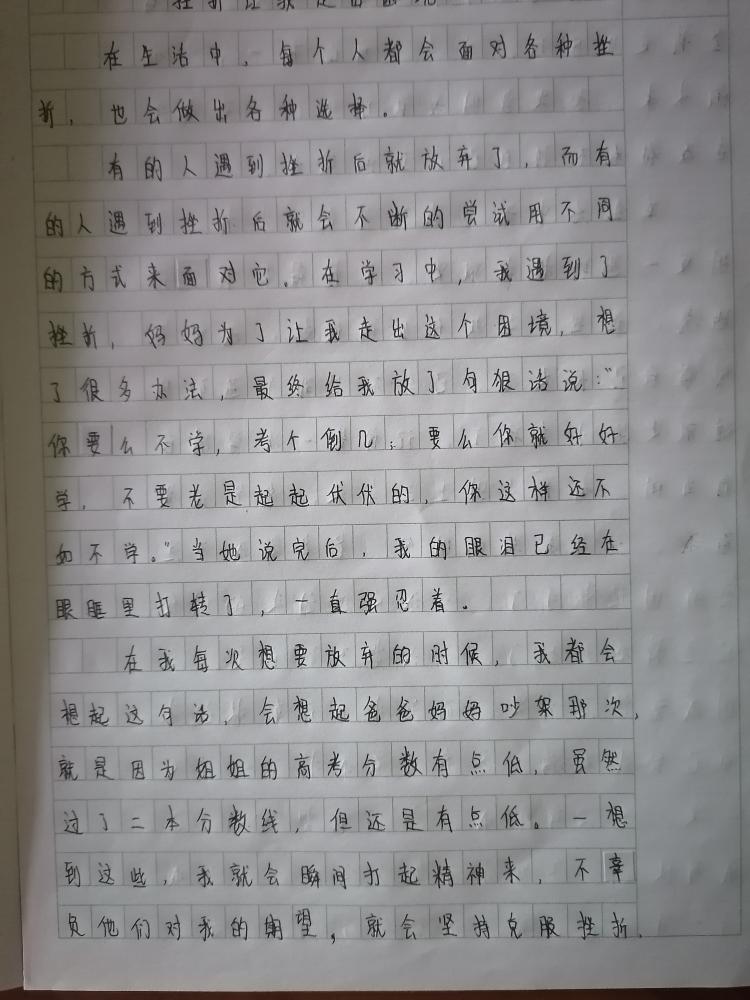 挫折让我走出困境
在生活中，每个人都会面对各种挫
折，也会做出各种选择。
有的人遇到挫折后就放弃了，而有
的人遇到挫折后就会不断的尝试用不同
的方式来面对它。在学习中，我遇到了
挫折，妈妈为了让我走出这个困境，想
了很多办法，最终给我放了句狠话说：“
你要么不学，考个倒几；要么你就好好
学，不要老是起起伏伏的，你这样还不
如不学。”当她说完后，我的眼泪已经在
眼眶里打转了，一直强忍着。
在我每次想要放弃的时候，我都会
想起这句话，会想起爸爸妈妈吵架那次，
就是因为姐姐的高考分数有点低，虽然
过了二本分数线，但还是有点低。一想
到这些，我就会瞬间打起精神来，不辜
负他们对我的期望，就会坚持克服挫折．